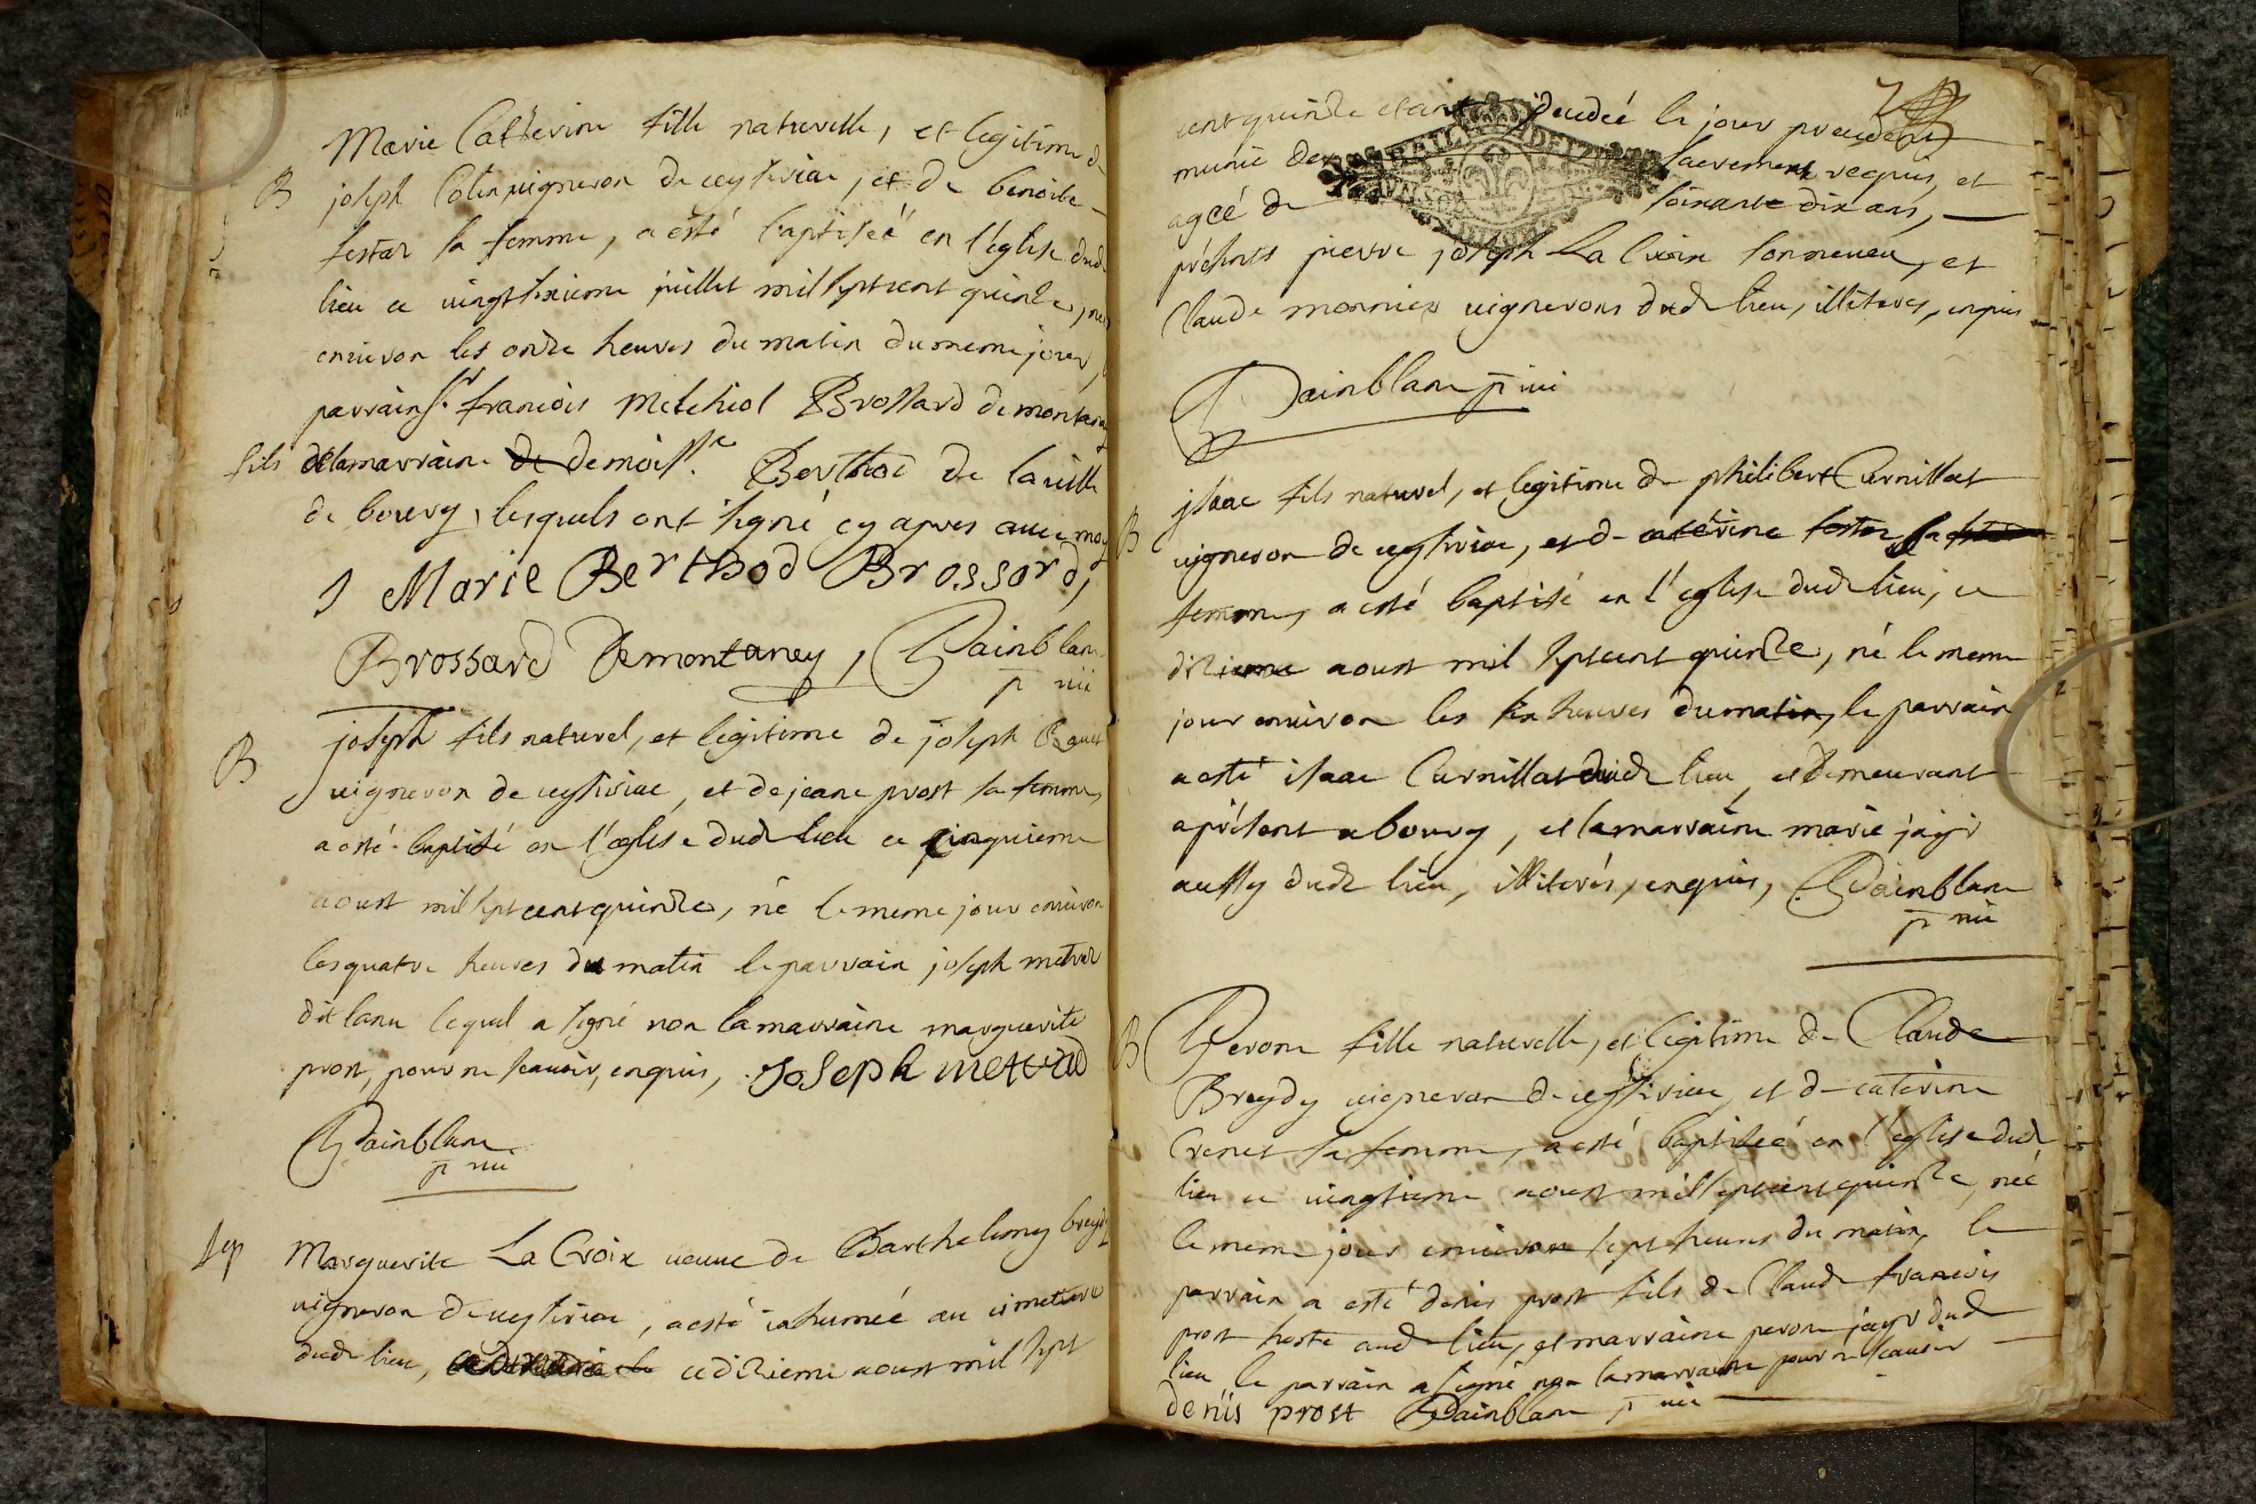 B
Marie Catherine fille naturelle, et legitime de
joseph Colin vigneron de ceyseriac, et de benoite
festaz sa femme, a esté baptiséé en l'eglise dud
lieu ce vingtsixieme juillet mil sept cent quinze, née
environ les onze heures du matin du meme jour,
parrain sr francois Melchiol Brossard de montaney
fils et la marraine de demoislle Berthod de la ville
de bourg, lesquels ont signé cy apres avec moy
J Marie Berthod Brossard,
Brossard Demontaney, Painblanc
p vic
B
joseph fils naturel, et legitime de joseph
vigneron de ceyseriac, et de jeane prost sa femme,
a esté baptisé en l'eglise dud lieu ce cinquieme
aoust mil sept cent quinze, né le meme jour environ
les quatre heures du matin le parrain joseph metrad
dit lanu lequel a signé non la marraine marguerite
prost, pour ne scavoir, enquis, Joseph mettrad
Painblanc
p vic
Sep
Marguerite La Croix veuve de Barthelemy breydy
vigneron de ceyseriac, a esté inhuméé au cimetiere
dud lieu, ce dizieme aoust mil sept
cent quinze etant decedéé le jour precedent
munie des sacrements requis, et
agéé de soixante dix ans,
présents pierre joseph La Croix son neveu, et
Claude monnier vignerons dud lieu, illiteres, enquis
Painblanc p vic
B
jsaac fils naturel, et legitime de philibert Curnillat
vigneron de ceyseriac, et de caterine festaz sa
femme, a esté baptisé en l'eglise dud lieu, ce
dizieme aoust mil sept cent quinze, né le meme
jour environ les six heures du matin, le parrain
a esté isaac Curnillat dud lieu, et demeurant
a présent a bourg, et la marraine marie jayr
aussy dud lieu, illiterés, enquis, Painblanc
p vic
B
Perone fille naturelle, et legitime de Claude
Breydy vigneron de ceyseriac, et de caterine
Crenet sa femme, a esté baptiséé en l'eglise dud
lieu ce vingtieme aoust mil sept cent quinze, néé
le meme jour environ sept heures du matin, le
parrain a esté denis prost fils de Claude francois
prost hoste aud lieu, et marraine perone jayr dud
lieu le parrain a signé non la marraine pour ne scavoir
deniis prost Painblanc p vic